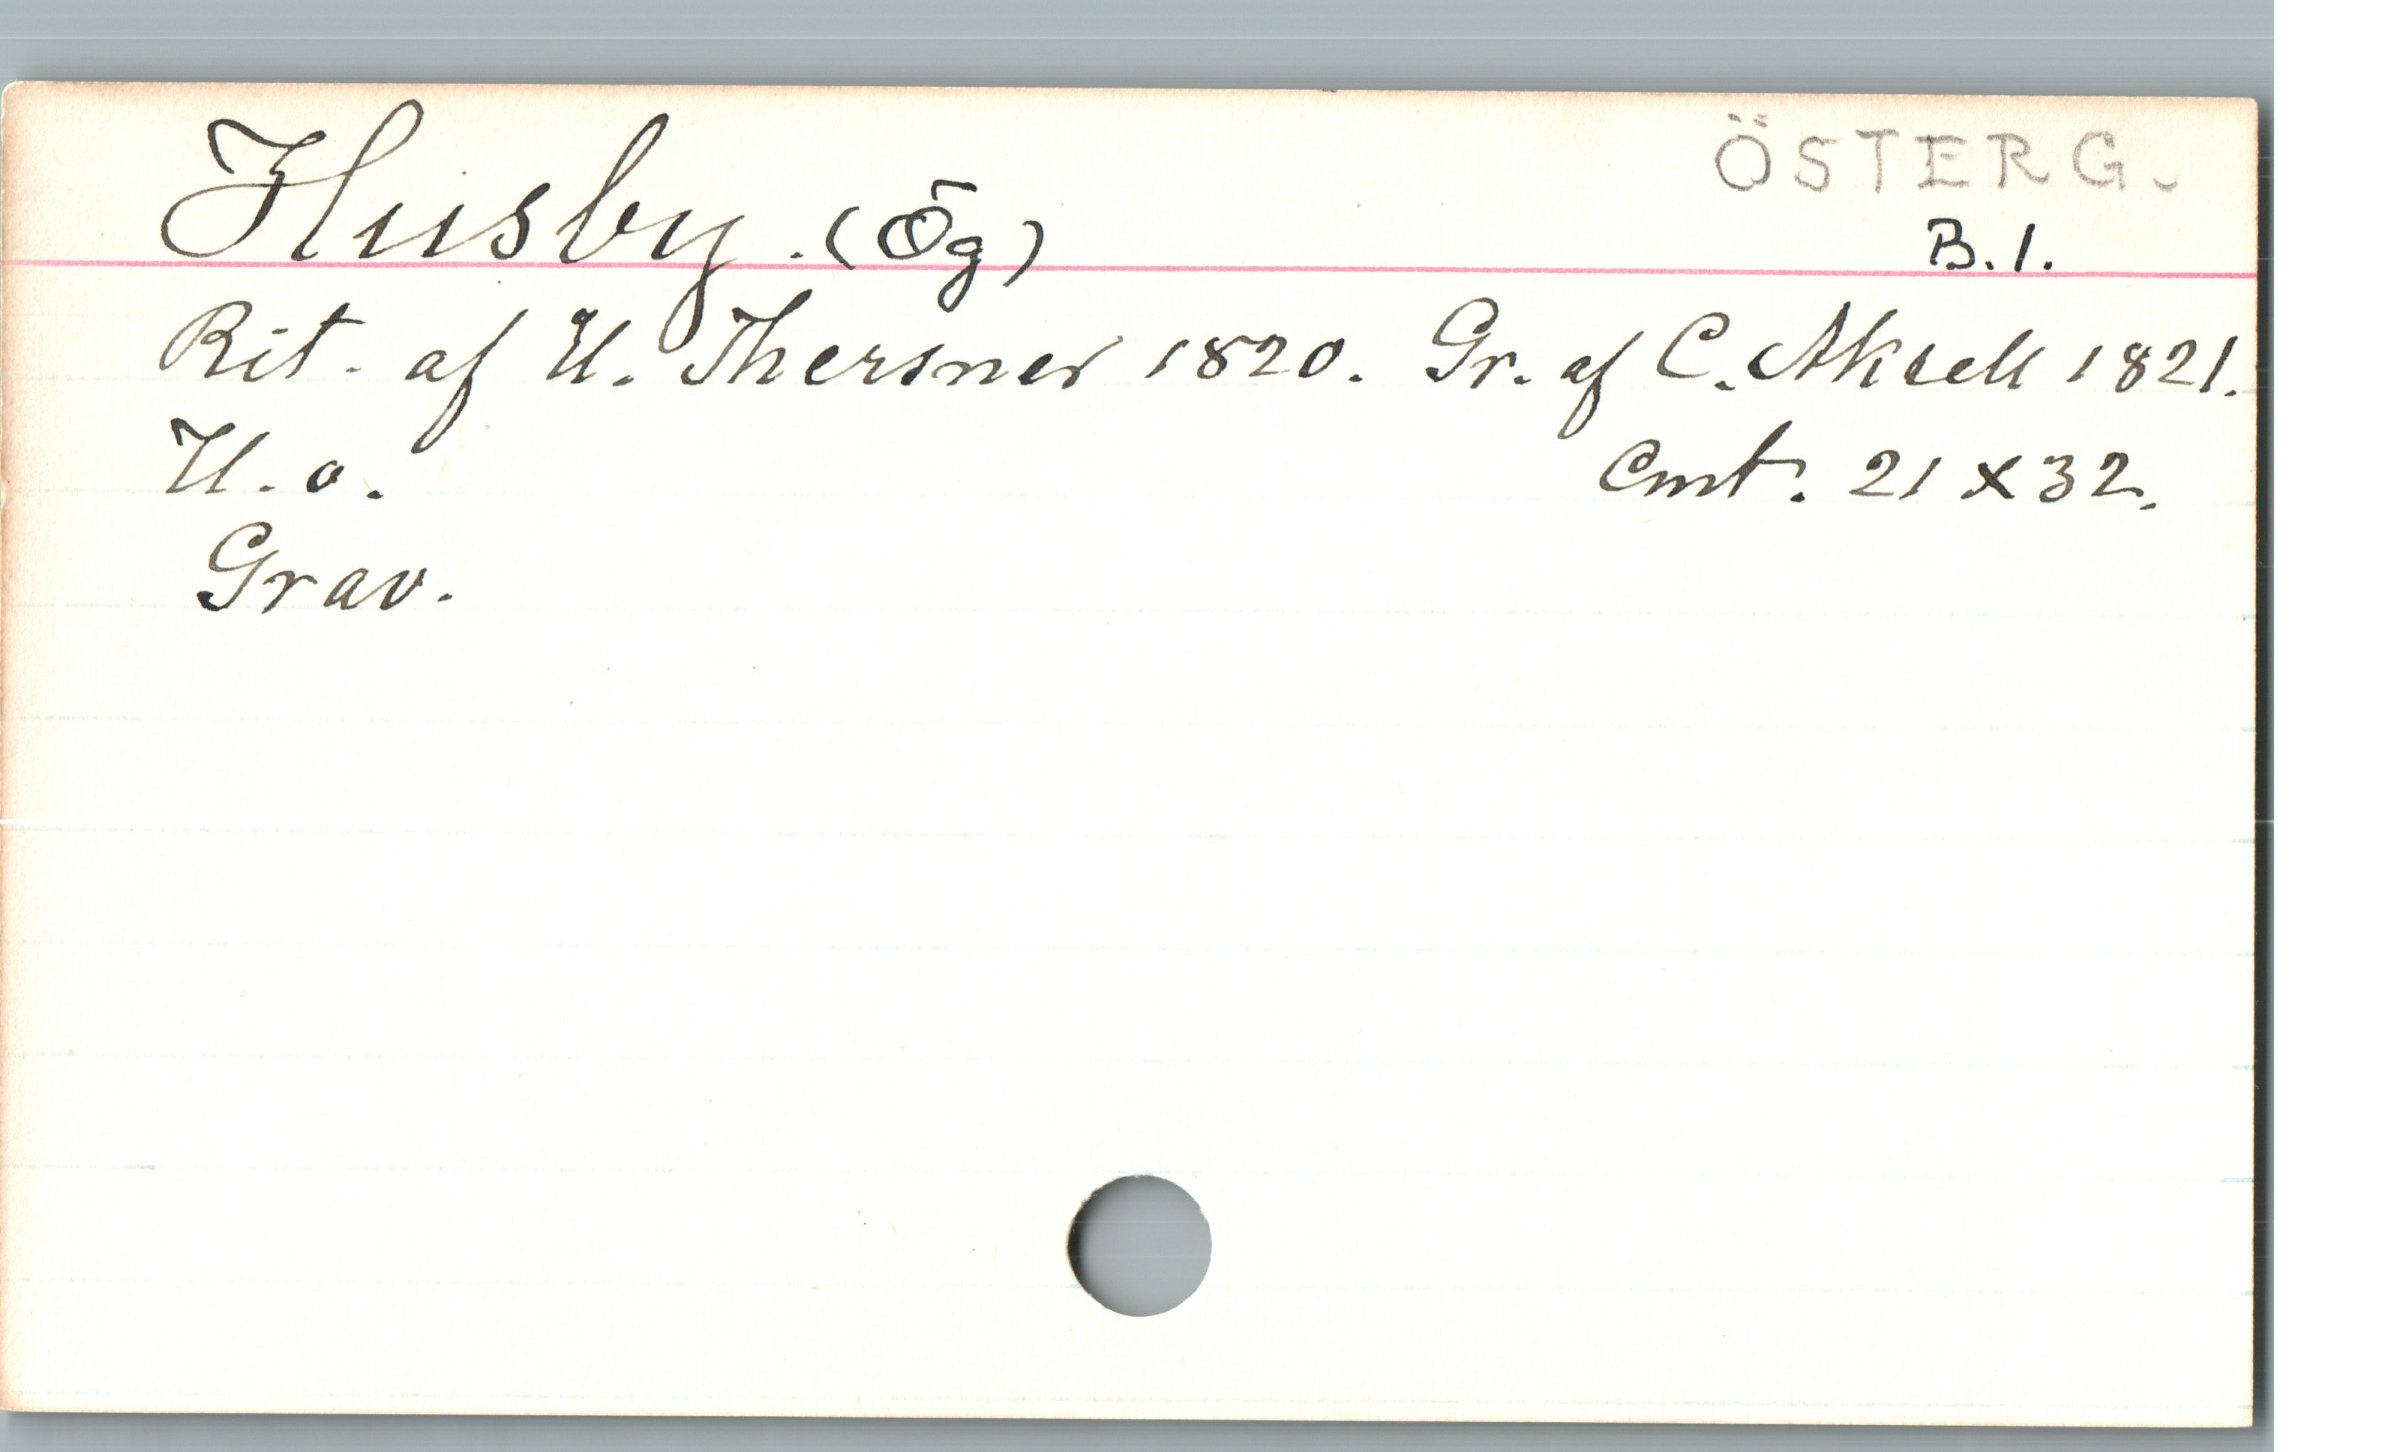 ÖSTERG.
Husby. (Ög)
B.1.
Rit. af U. Thersner 1820. Gr. af C. Akrell 1821.
U. o. Cmt. 21 x 32.
Grav.